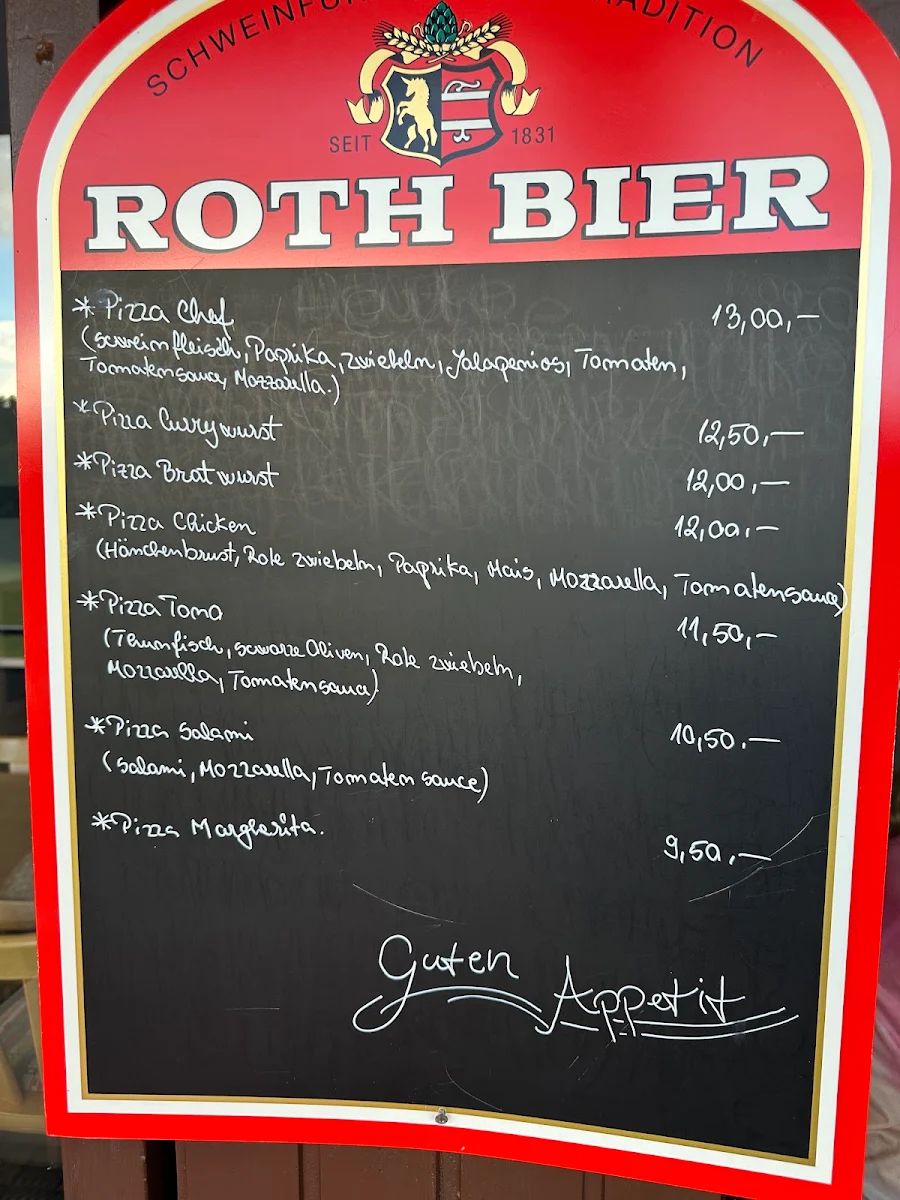 SCHWEINFUR TRADITION
SEIT 1831
ROTH BIER
* Pizza Chef 13,00,—
(schweinfleisch, Paprika, zwiebeln, Jalapenios, Tomaten,
Tomatensauce, Mozzarella.)
* Pizza Currywurst 12,50,—
* Pizza Bratwurst 12,00,—
* Pizza Chicken 12,00,—
(Hänchenbrust, Rote zwiebeln, Paprika, Mais, Mozzarella, Tomatensauce)
* Pizza Tona 11,50,—
(Thunfisch, schwarze Oliven, Rote zwiebeln,
Mozzarella, Tomatensauce)
* Pizza Salami 10,50.—
(Salami, Mozzarella, Tomaten sauce)
* Pizza Margherita.
9,50,—
Guten
Appetit